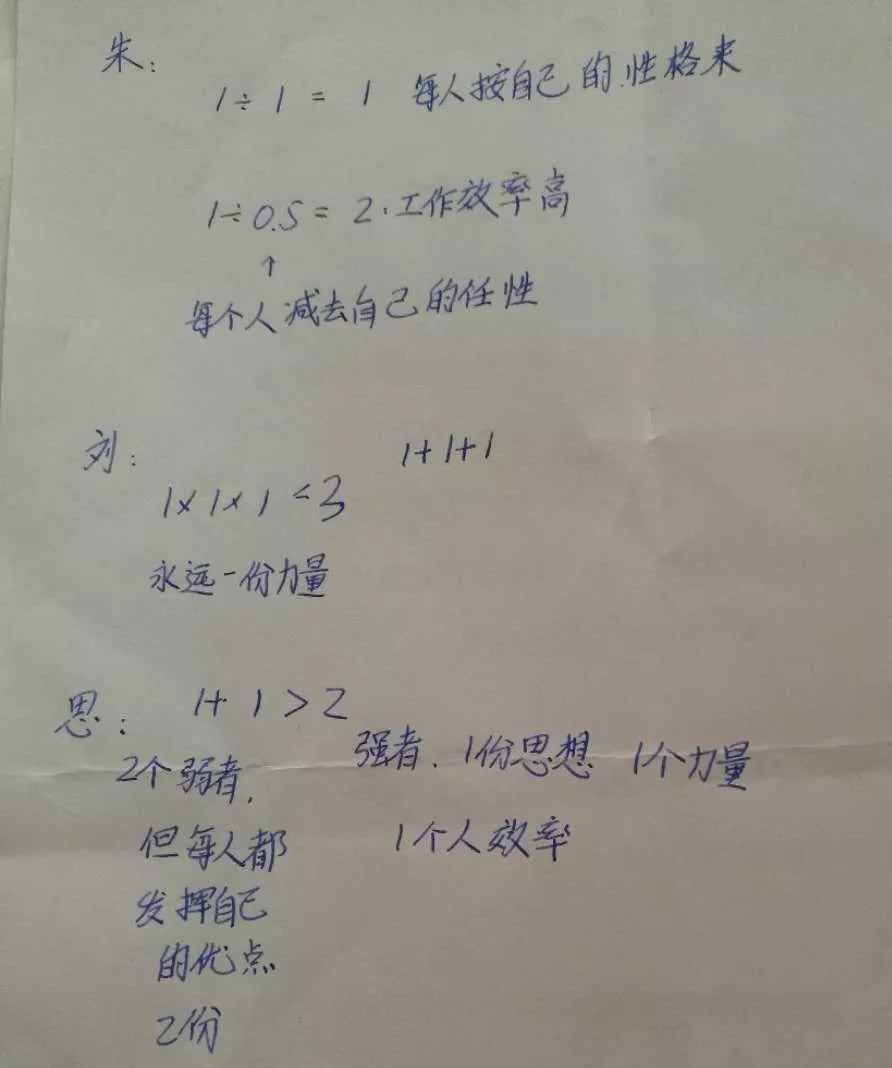 朱：
1÷1=1 每人按自己的性格来
1÷0.5=2.工作效率高
↑
每个人减去自己的任性
刘：
1+1+1
1×1×1<3
永远一份力量
思：
1+1>2
2个弱者，
强者、1份思想 1个力量
但每人都
1个人效率
发挥自己
的优点
2份